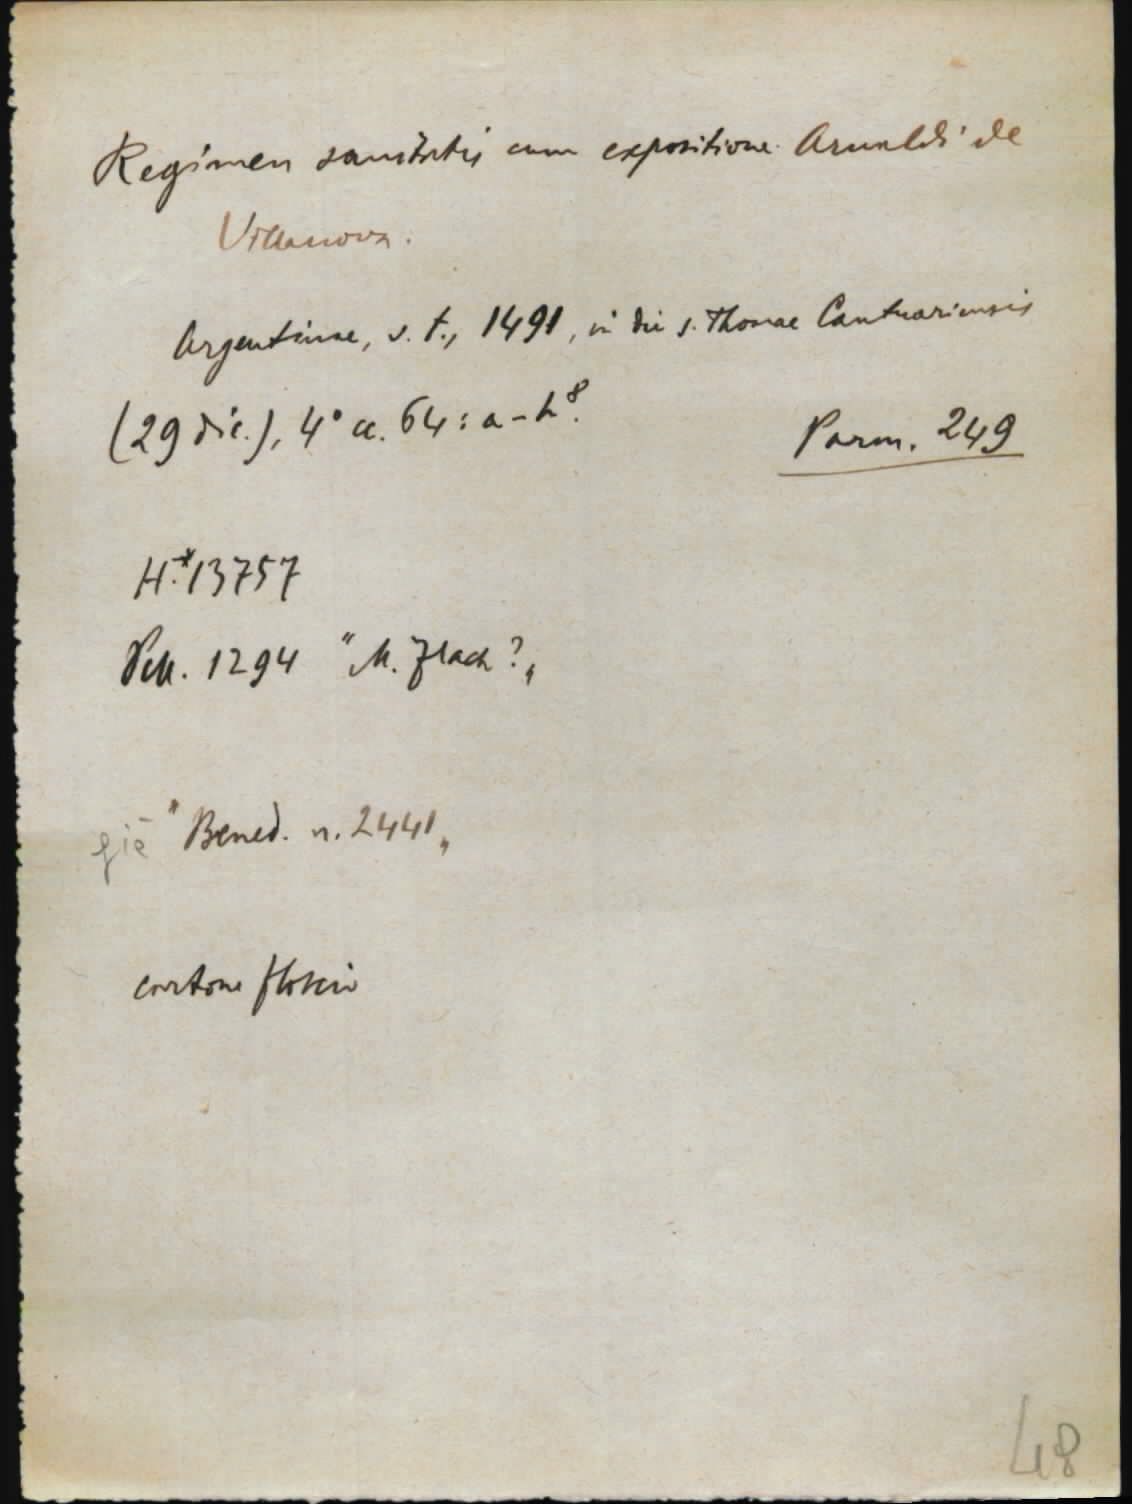 Regimen sanitatis cum expositione Arnaldi de
Villanova.
Argentinae, s. t., 1491, in die s. Thomae Cantuariensis
(29 dic.), 4° cc. 64: a-h⁸.
Parm. 249
H.*13757
Pell. 1294 "M. Flach?„
già "Bened. n. 2441„
cartone floscio
48